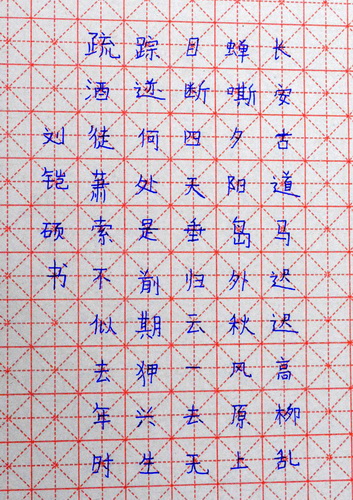 长安古道马迟迟高柳乱
蝉嘶夕阳岛外秋风原上
目断四天垂归云一去无
踪迹何处是前期狎兴生
疏酒徒萧索不似去年时
刘铠硕书